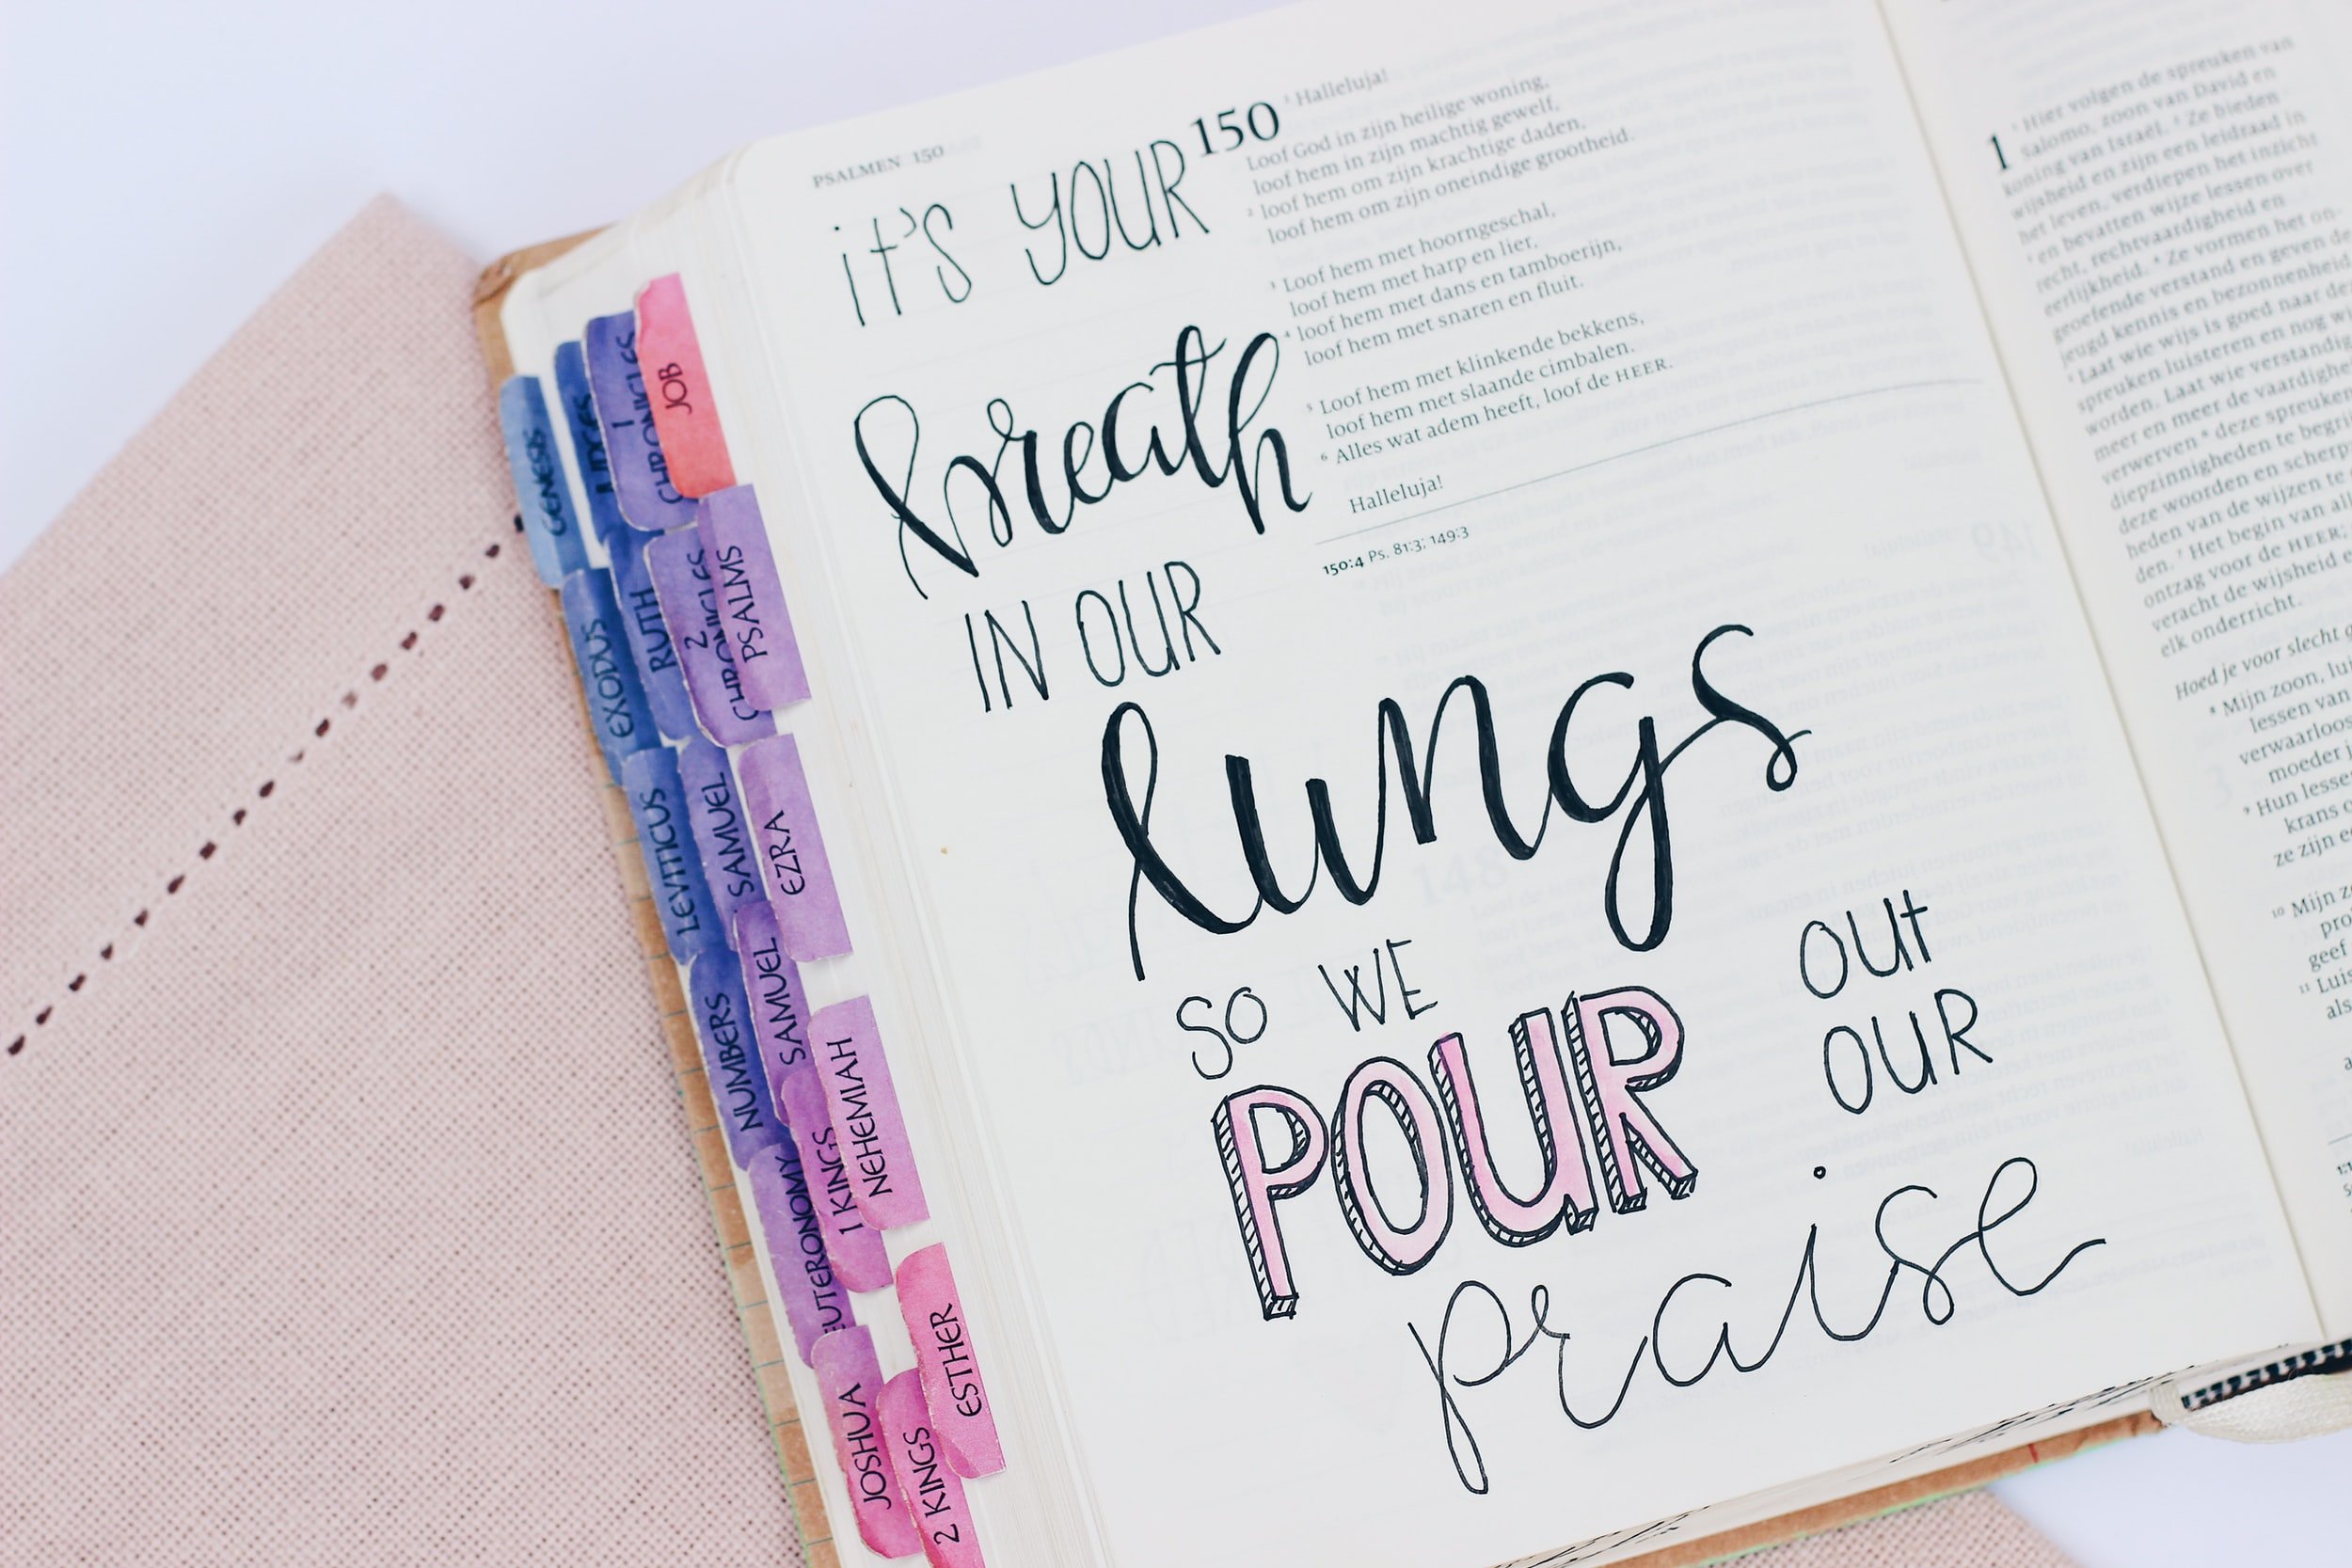 PSALMEN 150
150
¹ Halleluja!
Loof God in zijn heilige woning,
loof hem in zijn machtig gewelf,
² loof hem om zijn krachtige daden,
loof hem om zijn oneindige grootheid.
³ Loof hem met hoorngeschal,
loof hem met harp en lier,
⁴ loof hem met dans en tamboerijn,
loof hem met snaren en fluit.
⁵ Loof hem met klinkende bekkens,
loof hem met slaande cimbalen.
⁶ Alles wat adem heeft, loof de HEER.
Halleluja!
150:4 Ps. 81:3; 149:3
it's YOUR
breath
IN OUR
lungs
SO WE
POUR
OUt
OUR
praise
GENESIS
EXODUS
LEVITICUS
NUMBERS
JOSHUA
RUTH
SAMUEL
SAMUEL
1 KINGS
2 KINGS
1
CHRONICLES
2
CHRONICLES
EZRA
NEHEMIAH
ESTHER
JOB
PSALMS
1
¹ Hier volgen de spreuken van
Salomo, zoon van David en
koning van Israël. ² Ze bieden
wijsheid en zijn een leidraad in
het leven, verdiepen het inzicht
³ en bevatten wijze lessen over
recht, rechtvaardigheid en
eerlijkheid. ⁴ Ze vormen het on-
geoefende verstand en geven de
jeugd kennis en bezonnenheid.
⁵ Laat wie wijs is goed naar de
spreuken luisteren en nog
worden. Laat wie verstandig
meer en meer de vaardigheid
verwerven ⁶ deze spreuken
diepzinnigheden te
deze woorden en scherp
heden van de wijzen te
den. ⁷ Het begin van
ontzag voor de HEER.
veracht de wijsheid
elk onderricht.
Hoed je voor slecht
⁸ Mijn zoon,
lessen van
verwaarloos
moeder
⁹ Hun lessen
krans
ze zijn
¹⁰ Mijn
geef
¹¹
als